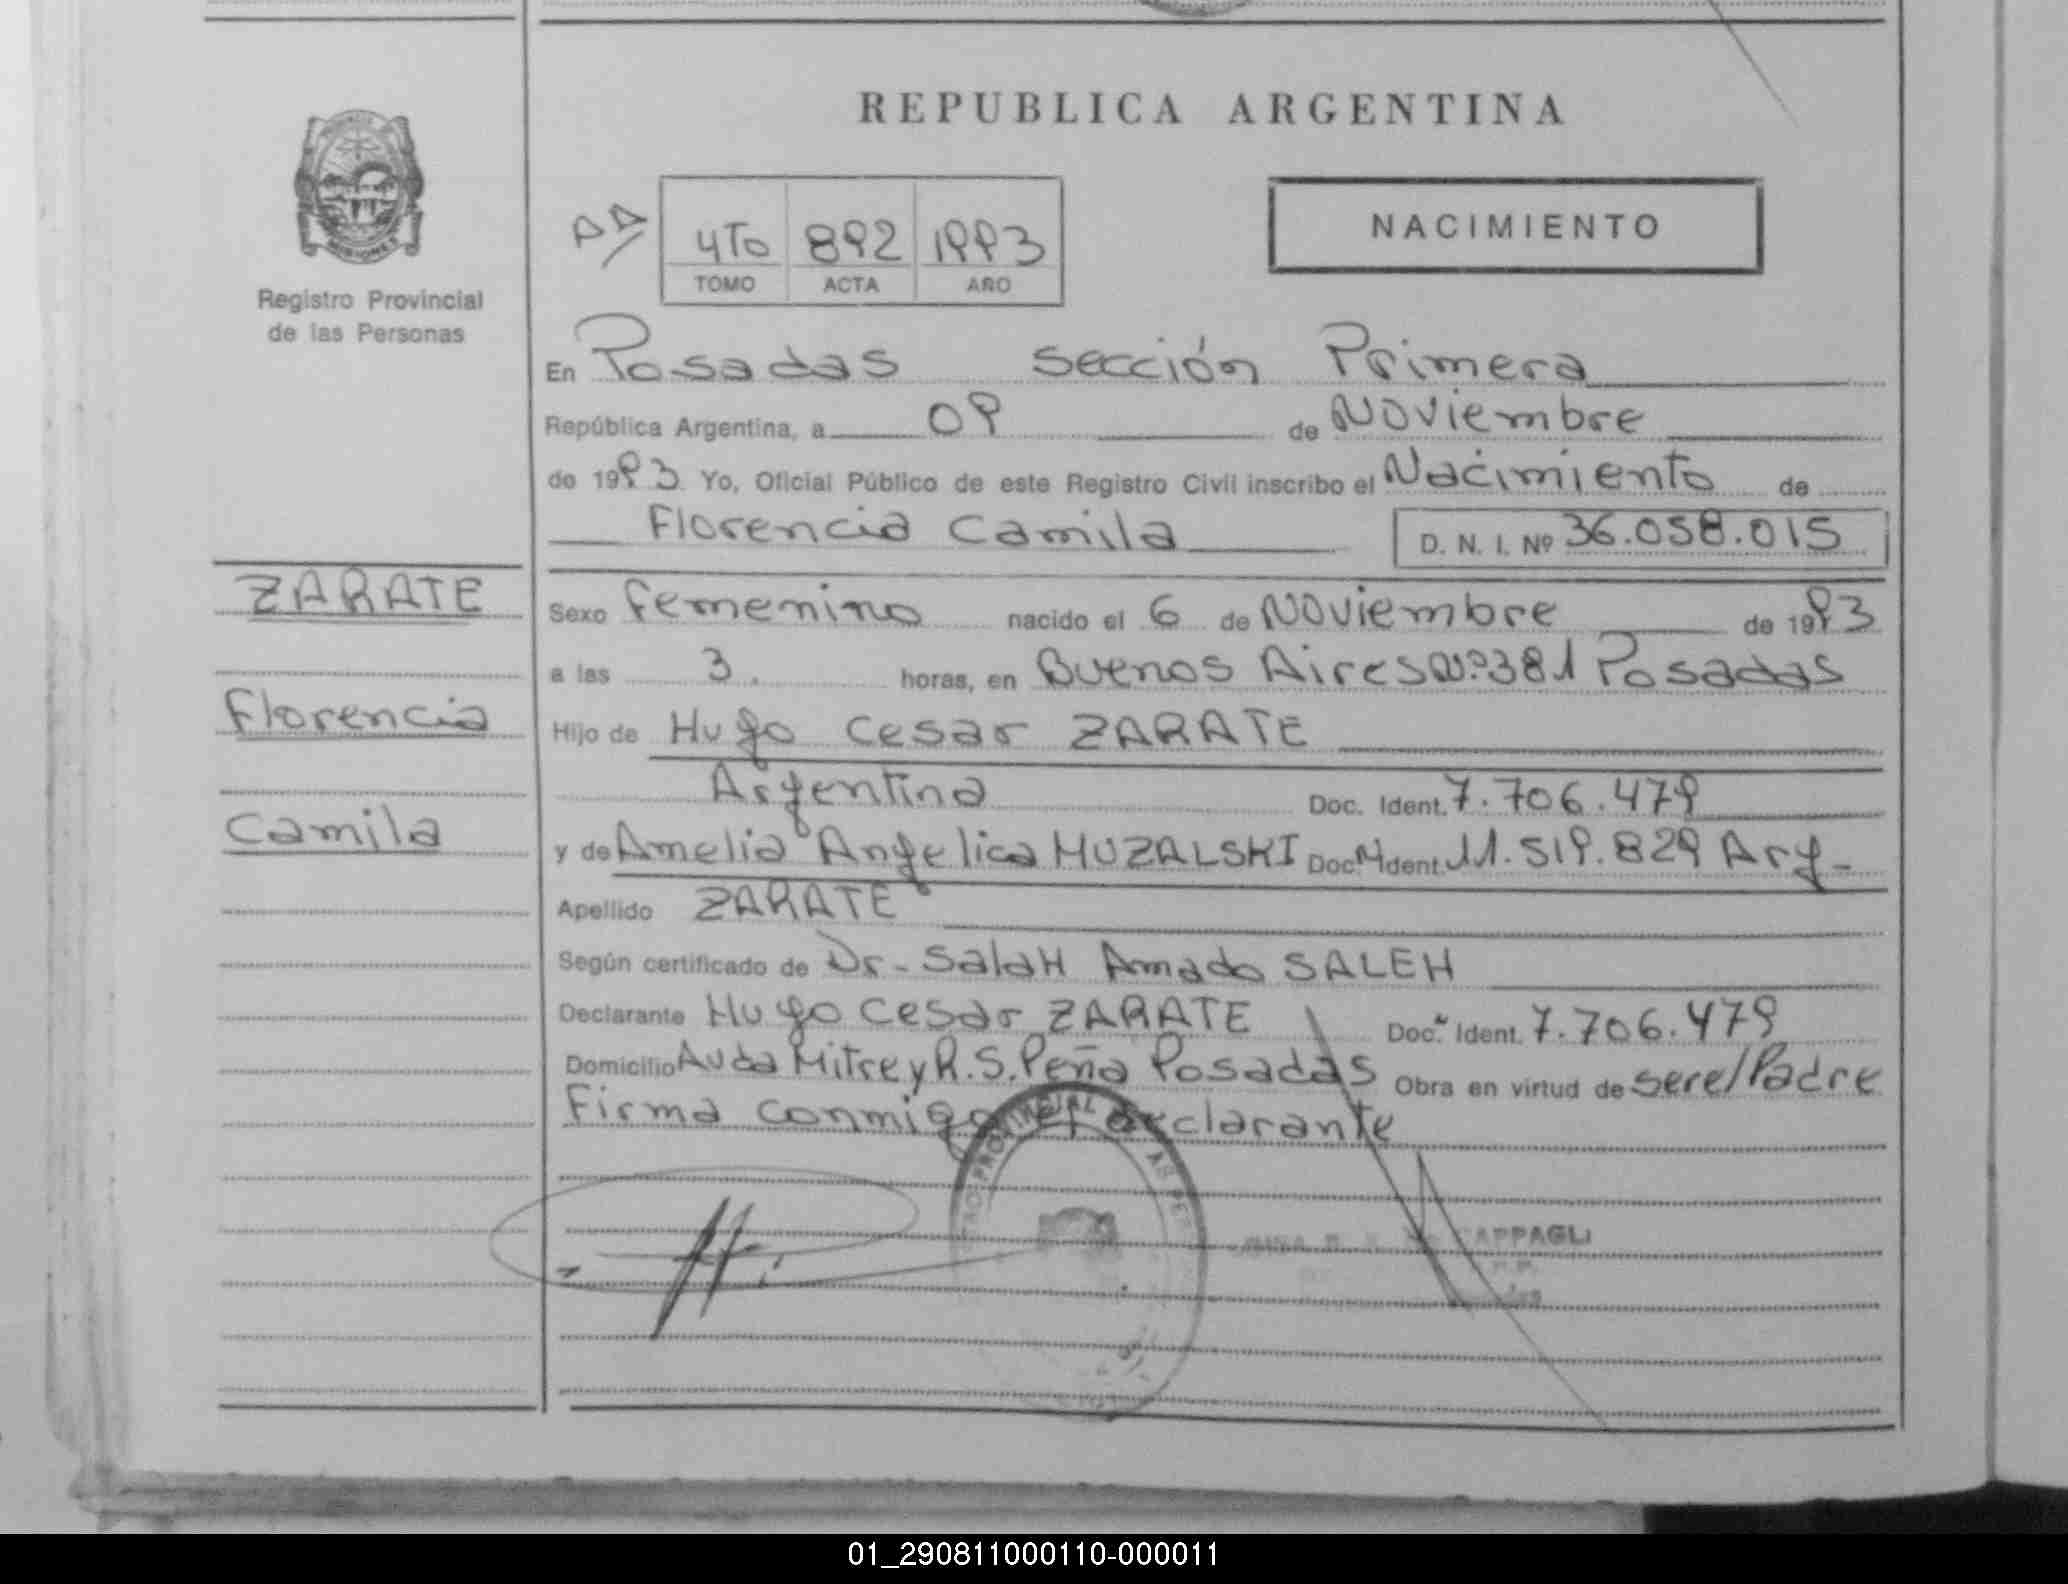 REPUBLICA ARGENTINA
4To 892 1993
TOMO ACTA AÑO
NACIMIENTO
MISIONES
Registro Provincial
de las Personas
En Posadas Sección Primera
República Argentina, a 09 de Noviembre
de 1993 Yo, Oficial Público de este Registro Civil inscribo el Nacimiento de
Florencia Camila D. N. I. Nº 36.058.015
ZARATE
Florencia
Camila
Sexo Femenino nacido el 6 de Noviembre de 1993
a las 3. horas, en Buenos Aires Nº 381 Posadas
Hijo de Hugo Cesar ZARATE
Argentina Doc. Ident. 7.706.479
y de Amelia Angelica MUZALSKI Doc. Ident. 11.519.829 Arg-
Apellido ZARATE
Según certificado de Dr- Salah Amado SALEH
Declarante Hugo Cesar ZARATE Doc. Ident. 7.706.479
Domicilio Avda Mitre y R.S. Peña Posadas Obra en virtud de ser el Padre
Firma conmigo el declarante
PROVINCIAL
CAPPAGLI
01_290811000110-000011